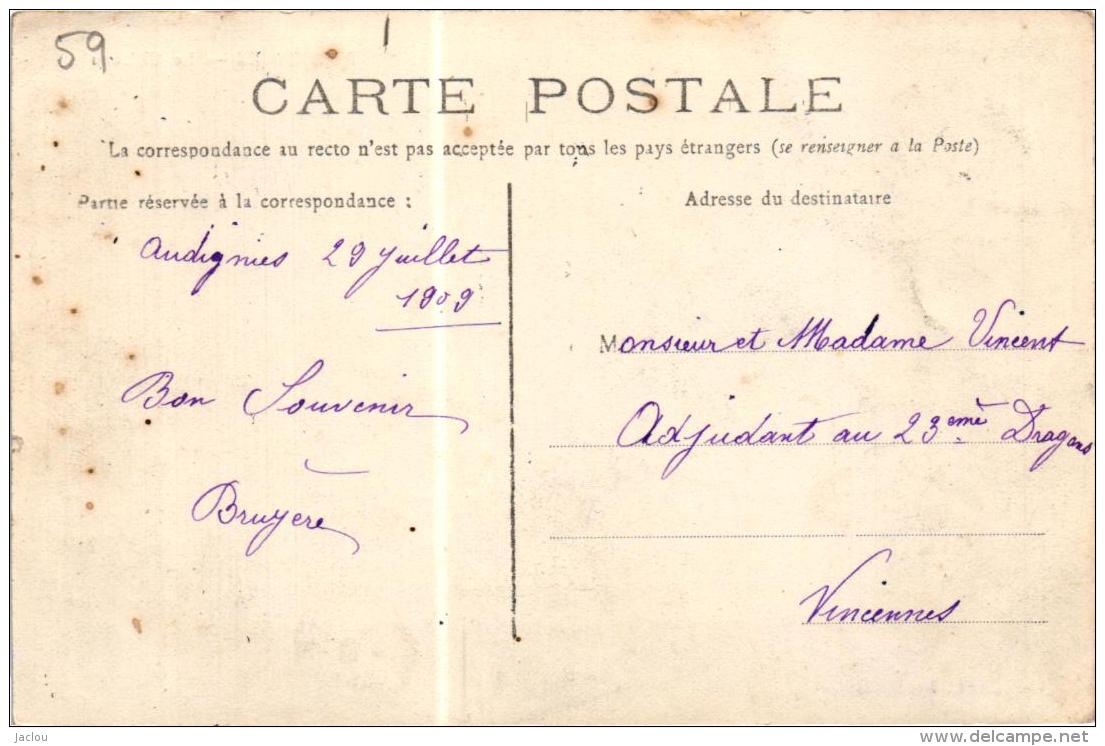 59
CARTE POSTALE
La correspondance au recto n'est pas acceptée par tous les pays étrangers (se renseigner a la Poste)
Partie réservée à la correspondance :
Audignies 29 Juillet
1909
Bon Souvenir
Bruyère
Adresse du destinataire
Monsieur et Madame Vincent
Adjudant au 23eme Dragons
Vincennes
jaclou
www.delcampe.net